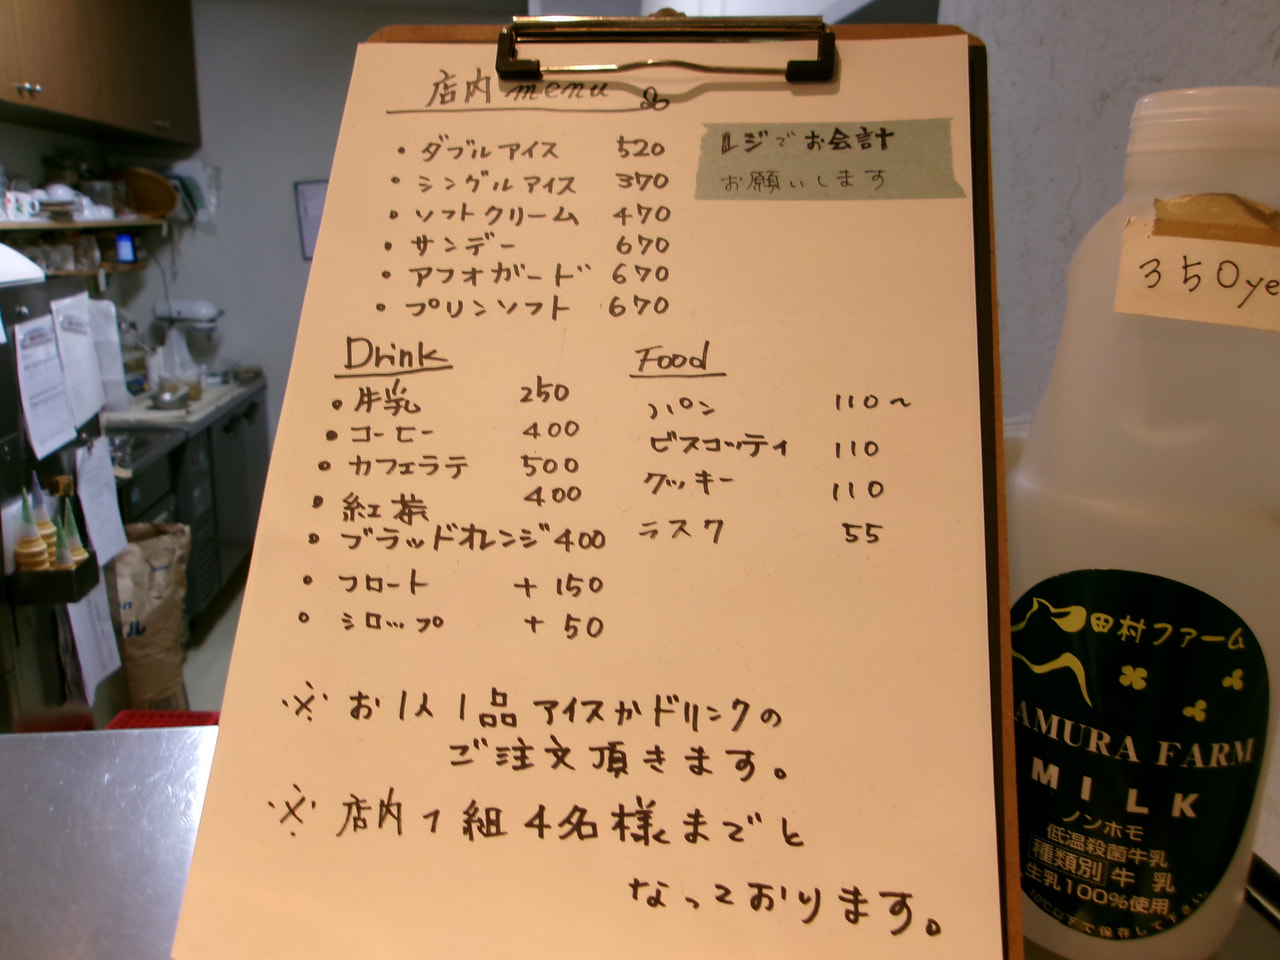 店内 menu
レジでお会計
お願いします
・ダブルアイス 520
・シングルアイス 370
・ソフトクリーム 470
・サンデー 670
・アフォガード 670
・プリンソフト 670
Drink
・牛乳 250
・コーヒー 400
・カフェラテ 500
・紅茶 400
・ブラッドオレンジ 400
・フロート +150
・シロップ +50
Food
パン 110〜
ビスコッティ 110
クッキー 110
ラスク 55
※お1人1品アイスかドリンクの
ご注文頂きます。
※店内1組4名様までと
なっております。
350ye
田村ファーム
AMURA FARM
MILK
ノンホモ
低温殺菌牛乳
種類別 牛乳
生乳100%使用
10℃以下で保存して下さい